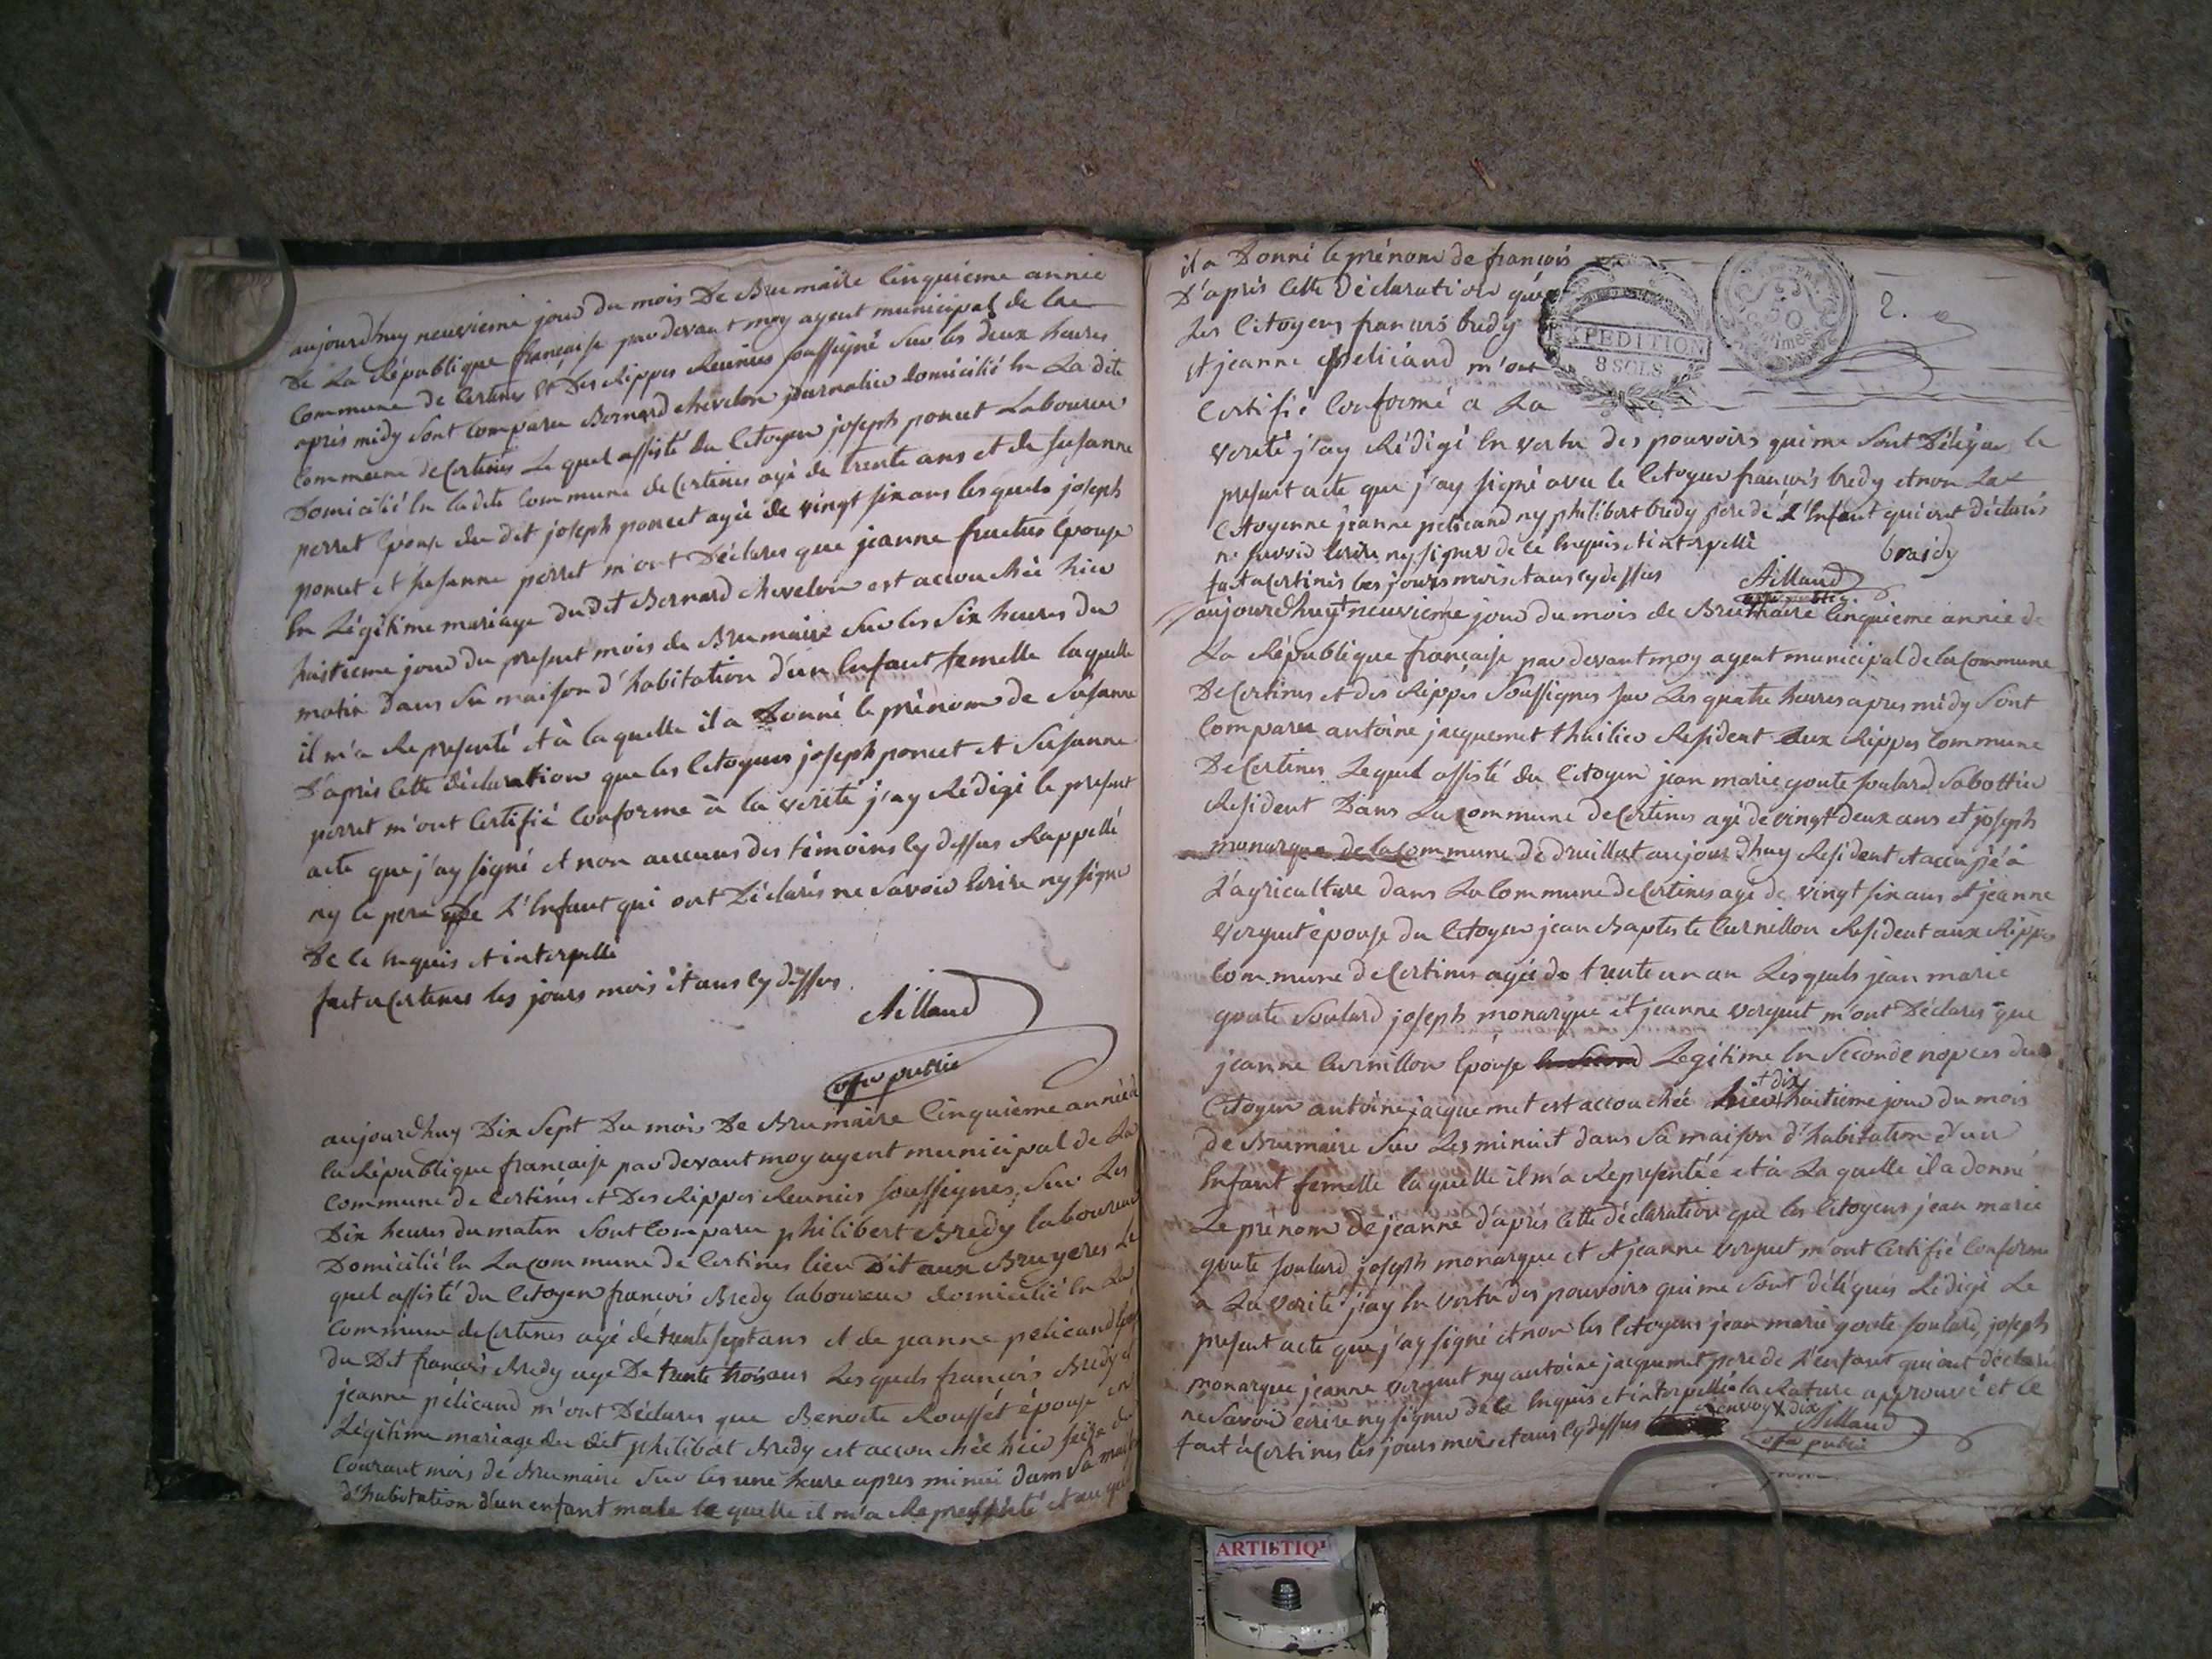 aujourdhuy neuvieme jour du mois De Brumaire Cinquieme année
De La République française par devant moy agent municipal de la
Commune de Certines et Des Rippes Reunies soussigné sur les deux heures
apres midy sont comparu Bernard chevelon journalier domicilié En La dite
Commune de Certines Le quel assisté du Citoyen joseph poncet Laboureur
Domicilié En ladite Commune de Certines agé de trente ans et de susanne
perret Epouse du dit joseph poncet agée de vingt six ans les quels joseph
poncet et susanne perret m'ont Déclarés que jeanne fructus Epouse
En Légitime mariage dudit Bernard chevelon est accouchée hier
huitieme jour du present mois de Brumaire sur les six heures du
matin dans sa maison d'habitation d'un Enfant femelle laquelle
il m'a Representé et à laquelle il a Donné le prénom de susanne
D'apres Cette déclaration que les Citoyens joseph poncet et susanne
perret m'ont Certifié Conforme à la verité j'ay Rédigé le present
acte que j'ay signé et non aucuns des témoins cy dessus Rappellé
ny le pere de L'Enfant qui ont Déclarés ne savoir Ecrire ny signer
De ce Enquis et interpellé
fait a Certines les jours mois et ans cy dessus
Aillaud
offer public
aujourdhuy Dix sept Du mois De Brumaire Cinquieme année de
la République française par devant moy agent municipal de La
Commune de Certines et Des Rippes Reunies soussignés, sur Les
Dix heures du matin sont Comparu philibert Bredy laboureur
Domicilié En La commune de Certines lieu Dit aux Bruyeres Le
quel assisté du Citoyen francois Bredy laboureur domicilié En La
Commune de Certines agé de trente sept ans et de jeanne pelicand
du Dit francois Bredy agé De trente trois ans Les quels francois Bredy et
jeanne pélicand m'ont Déclarés que Benoite Rousset épouse en
Légitime mariage du dit philibert Bredy est accouchée hier seize du
Courant mois de Brumaire sur les une heure apres minui dans sa maison
d'habitation d'un enfant male le quelle il m'a Representé et au quel
il a Donné le prénom de francois
D'après Cette Déclaration que
Les Citoyens francois bredy
et jeanne peliciand m'ont
Certifié Conformé a La
EXPEDITION
8 SOLS
50
Centimes
2.
verité j'ay Rédigé En vertu des pouvoirs qui me sont Délégués le
present acte que j'ay signé avec le Citoyen francois bredy et non La
Citoyenne jeanne pelicand ny philibert bredy pere de L'Enfant qui ont déclarés
ne savoir Ecrire ny signer de ce Enquis et interpellé
braidy
fait a Certines les jours mois et ans cy dessus
Aillaud
offer public
aujourdhuy neuvieme jour du mois de Brumaire Cinquieme année de
La République française par devant moy agent municipal de la Commune
De Certines et des Rippes soussignés sur Les quatre heures apres midy sont
Comparu antoine jacquemet thuilier Resident aux Rippes Commune
De Certines Lequel assisté du Citoyen jean marie goute soulard sabottier
Resident Dans La commune de Certines agé de vingt deux ans et joseph
monarque de la Commune de druillat aujourd'huy Resident et accupé à
L'agriculture dans La Commune de Certines agé de vingt six ans et jeanne
verguet épouse du Citoyen jean Baptiste Curnillon Resident aux Rippes
Commune de Certines agée de trente un an Les quels jean marie
goute soulard joseph monarque et jeanne verguet m'ont Déclarés que
jeanne Curnillon Epouse Legitime En seconde nopces du
+ dix
Citoyen antoine jacquemet est accouchée hier + huitieme jour du mois
de Brumaire sur Les minuit dans sa maison d'habitation d'un
Enfant femelle laquelle il m'a Representée et à La quelle il a donné
Le prénom de jeanne d'apres Cette déclaration que les Citoyens jean marie
goute soulard joseph monarque et et jeanne verguet m'ont Certifié Conforme
a La verité j'ay En vertu des pouvoirs qui me sont délégués Rédigé Le
present acte que j'ay signé et non les Citoyens jean marie goute soulard joseph
monarque jeanne verguet ny antoine jacquemet pere de L'enfant qui ont déclarés
ne savoir ecrire ny signer de ce Enquis et interpellé la Rature approuvé et le
Renvoy X dix
fait à Certines les jours mois et ans cy dessus
Aillaud
offer public
ARTISTIQ